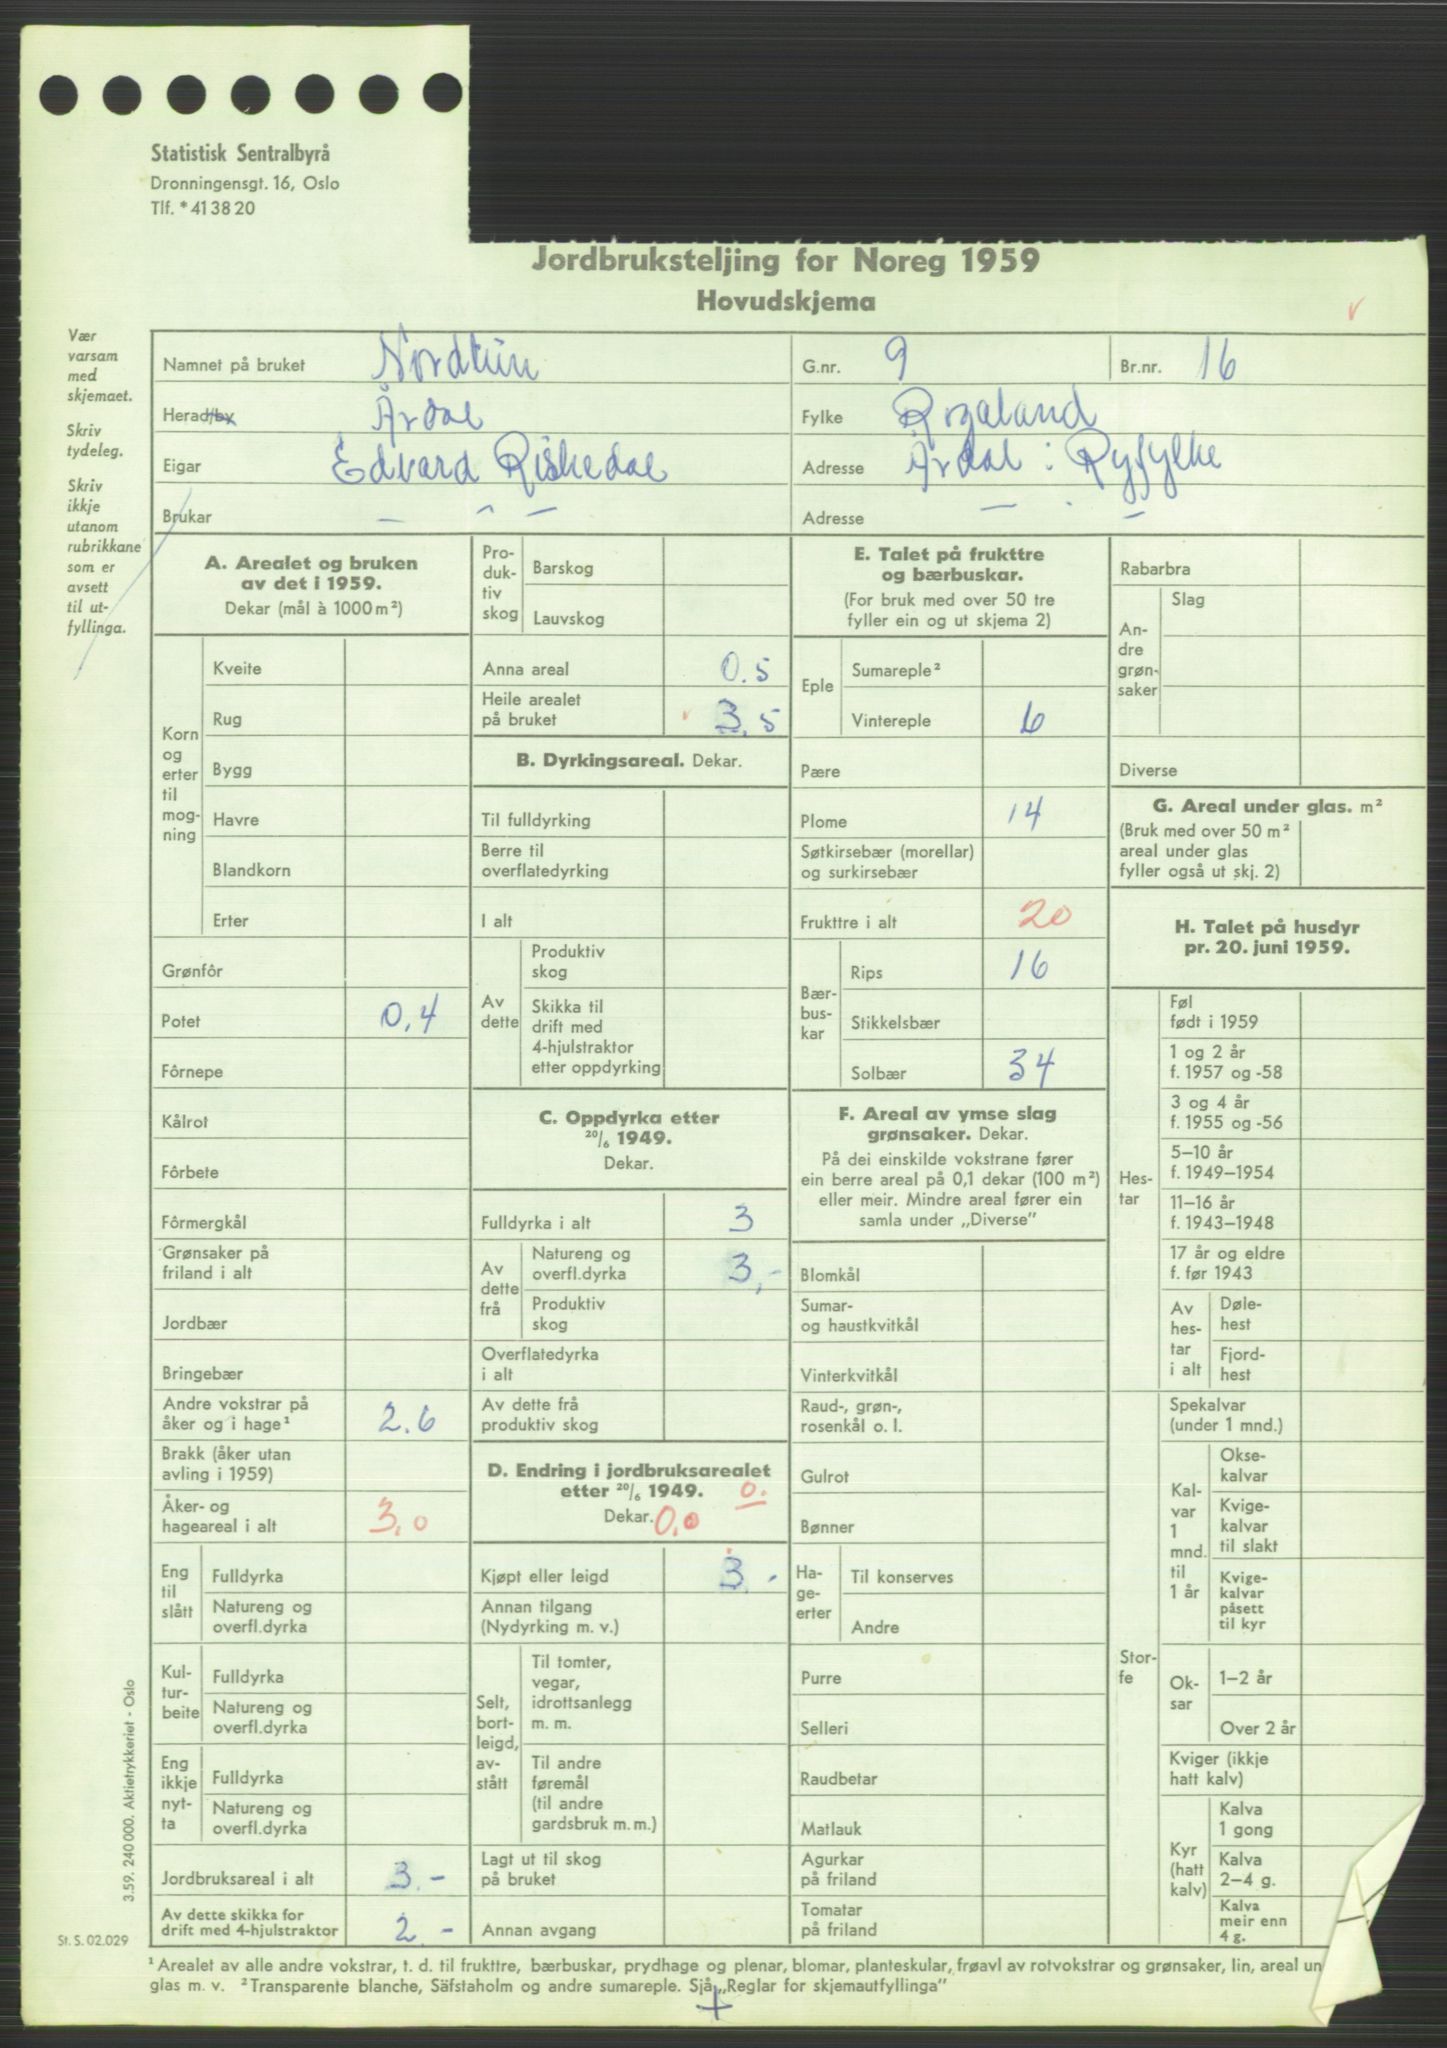 Statistisk Sentralbyrå
Dronningensgt. 16, Oslo
Tlf. * 41 38 20
Jordbruksteljing for Noreg 1959
Hovudskjema
Vær
varsam
med
skjemaet.
Skriv
tydeleg.
Skriv
ikkje
utanom
rubrikkane
som er
avsett
til ut-
fyllinga.
Namnet på bruket Nordtun G.nr. 9 Br.nr. 16
Herad/by Årdal Fylke Rogaland
Eigar Edvard Riskedal Adresse Årdal i Ryfylke
Brukar — " — Adresse — " —
A. Arealet og bruken
av det i 1959.
Dekar (mål à 1000 m²)
Korn
og
erter
til
mog-
ning
Kveite
Rug
Bygg
Havre
Blandkorn
Erter
Grønfôr
Potet 0,4
Fôrnepe
Kålrot
Fôrbete
Fôrmergkål
Grønsaker på
friland i alt
Jordbær
Bringebær
Andre vokstrar på
åker og i hage¹ 2.6
Brakk (åker utan
avling i 1959)
Åker- og
hageareal i alt 3,0
Eng
til
slått
Fulldyrka
Natureng og
overfl.dyrka
Kul-
tur-
beite
Fulldyrka
Natureng og
overfl.dyrka
Eng
ikkje
nyt-
ta
Fulldyrka
Natureng og
overfl.dyrka
Jordbruksareal i alt 3.-
Av dette skikka for
drift med 4-hjulstraktor 2.-
Pro-
duk-
tiv
skog
Barskog
Lauvskog
Anna areal 0.5
Heile arealet
på bruket 3,5
B. Dyrkingsareal. Dekar.
Til fulldyrking
Berre til
overflatedyrking
I alt
Av
dette
Produktiv
skog
Skikka til
drift med
4-hjulstraktor
etter oppdyrking
C. Oppdyrka etter
20/6 1949.
Dekar.
Fulldyrka i alt 3
Av
dette
frå
Natureng og
overfl.dyrka 3,-
Produktiv
skog
Overflatedyrka
i alt
Av dette frå
produktiv skog
D. Endring i jordbruksarealet
etter 20/6 1949. 0.
Dekar. 0,0
Kjøpt eller leigd 3.-
Annan tilgang
(Nydyrking m. v.)
Selt,
bort-
leigd,
av-
stått
Til tomter,
vegar,
idrottsanlegg
m. m.
Til andre
føremål
(til andre
gardsbruk m. m.)
Lagt ut til skog
på bruket
Annan avgang
E. Talet på frukttre
og bærbuskar.
(For bruk med over 50 tre
fyller ein og ut skjema 2)
Eple
Sumareple²
Vintereple 6
Pære
Plome 14
Søtkirsebær (morellar)
og surkirsebær
Frukttre i alt 20
Bær-
bus-
kar
Rips 16
Stikkelsbær
Solbær 34
F. Areal av ymse slag
grønsaker. Dekar.
På dei einskilde vokstrane fører
ein berre areal på 0,1 dekar (100 m²)
eller meir. Mindre areal fører ein
samla under „Diverse”
Blomkål
Sumar-
og haustkvitkål
Vinterkvitkål
Raud-, grøn-,
rosenkål o. l.
Gulrot
Bønner
Ha-
ge-
erter
Til konserves
Andre
Purre
Selleri
Raudbetar
Matlauk
Agurkar
på friland
Tomatar
på friland
Rabarbra
An-
dre
grøn-
saker
Slag
Diverse
G. Areal under glas. m²
(Bruk med over 50 m²
areal under glas
fyller også ut skj. 2)
H. Talet på husdyr
pr. 20. juni 1959.
Hes-
tar
Føl
født i 1959
1 og 2 år
f. 1957 og -58
3 og 4 år
f. 1955 og -56
5–10 år
f. 1949–1954
11–16 år
f. 1943–1948
17 år og eldre
f. før 1943
Av
hes-
tar
i alt
Døle-
hest
Fjord-
hest
Stor-
fe
Spekalvar
(under 1 mnd.)
Kal-
var
1
mnd.
til
1 år
Okse-
kalvar
Kvige-
kalvar
til slakt
Kvige-
kalvar
påsett
til kyr
Ok-
sar
1–2 år
Over 2 år
Kviger (ikkje
hatt kalv)
Kyr
(hatt
kalv)
Kalva
1 gong
Kalva
2–4 g.
Kalva
meir enn
4 g.
3.59. 240 000. Aktietrykkeriet - Oslo
St. S. 02.029
¹ Arealet av alle andre vokstrar, t. d. til frukttre, bærbuskar, prydhage og plenar, blomar, planteskular, frøavl av rotvokstrar og grønsaker, lin, areal un
glas m. v. ² Transparente blanche, Säfstaholm og andre sumareple. Sjå „Reglar for skjemautfyllinga”